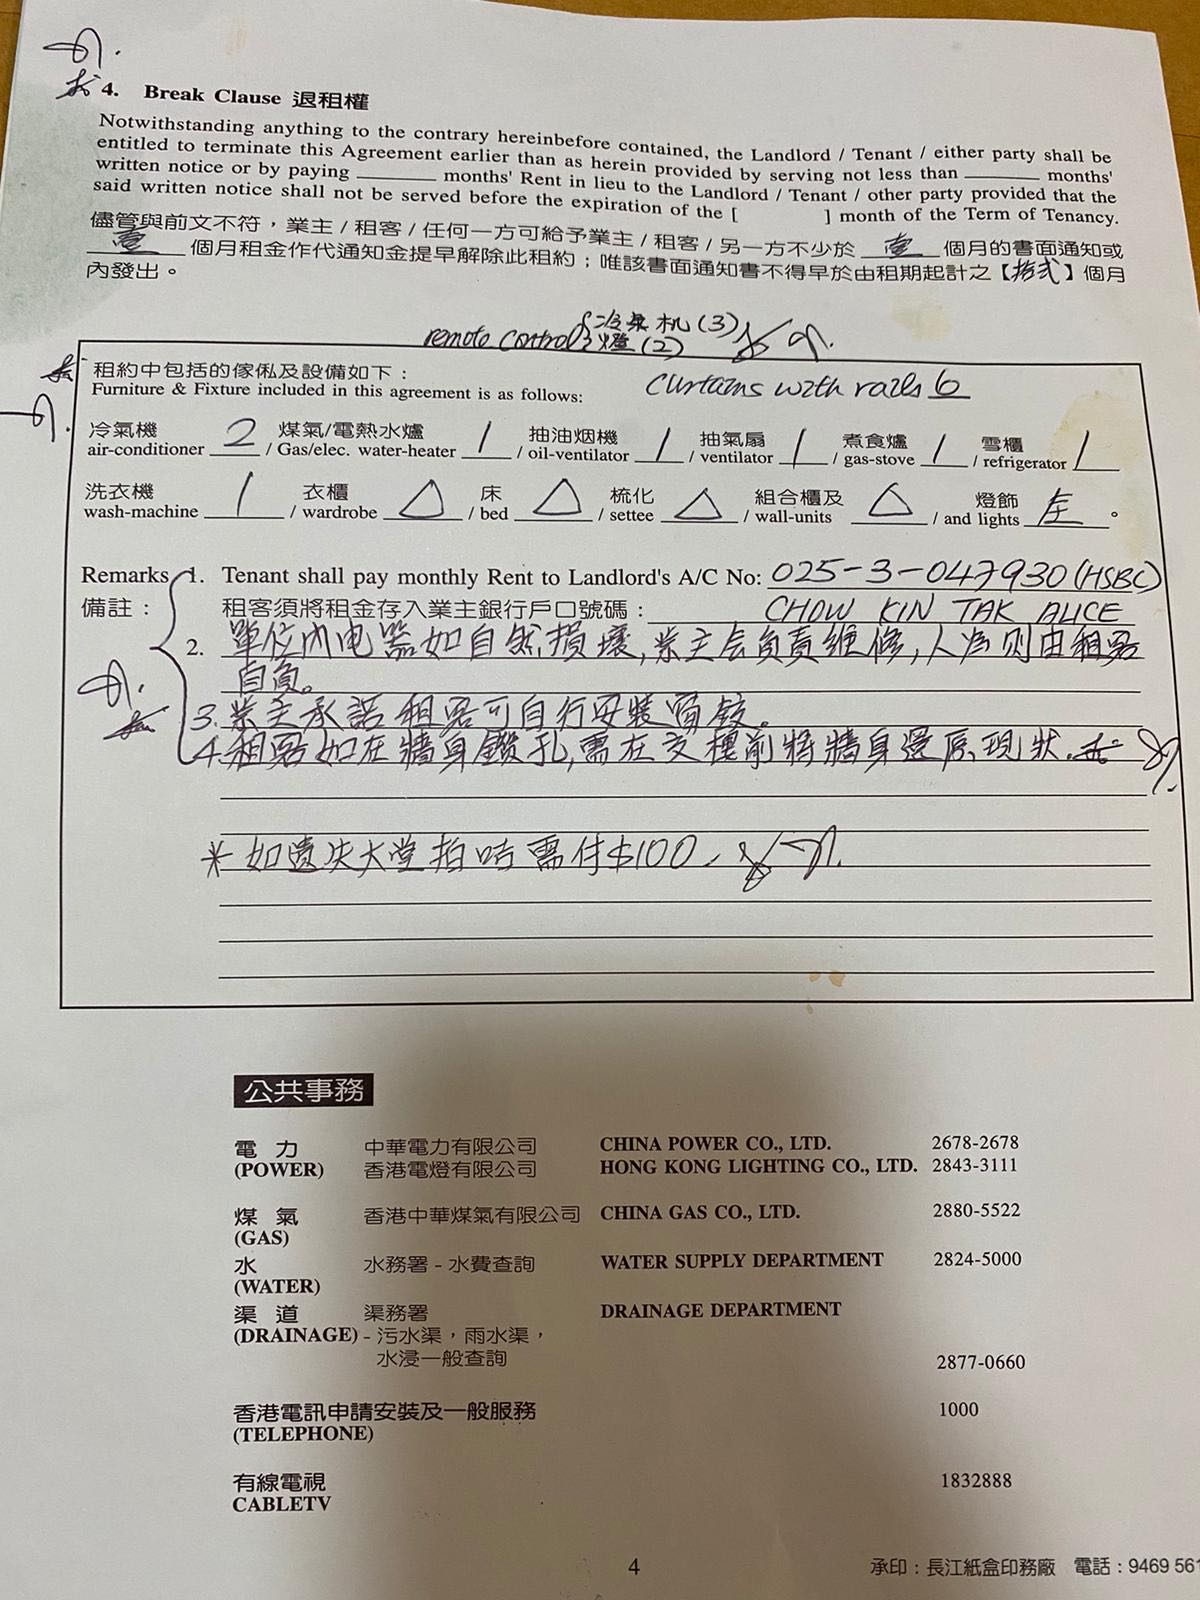 4. Break Clause 退租權
Notwithstanding anything to the contrary hereinbefore contained, the Landlord / Tenant / either party shall be
entitled to terminate this Agreement earlier than as herein provided by serving not less than ________ months'
written notice or by paying ________ months' Rent in lieu to the Landlord / Tenant / other party provided that the
said written notice shall not be served before the expiration of the [ ] month of the Term of Tenancy.
儘管與前文不符，業主 / 租客 / 任何一方可給予業主 / 租客 / 另一方不少於 壹 個月的書面通知或
壹 個月租金作代通知金提早解除此租約；唯該書面通知書不得早於由租期起計之【拾弍】個月
內發出。
remote control { 冷氣机 (3)
燈 (2)
租約中包括的傢俬及設備如下：
Furniture & Fixture included in this agreement is as follows: Curtains with rails 6
冷氣機 煤氣/電熱水爐 抽油烟機 抽氣扇 煮食爐 雪櫃
air-conditioner 2 / Gas/elec. water-heater 1 / oil-ventilator 1 / ventilator 1 / gas-stove 1 / refrigerator 1
洗衣機 衣櫃 床 梳化 組合櫃及 燈飾
wash-machine 1 / wardrobe △ / bed △ / settee △ / wall-units △ / and lights 左 。
Remarks 1. Tenant shall pay monthly Rent to Landlord's A/C No: 025-3-047930 (HSBC)
備註： 租客須將租金存入業主銀行戶口號碼： CHOW KIN TAK ALICE
2. 單位內电器如自然損壞,業主会负責維修,人為則由租客
自負。
3. 業主承諾租客可自行安裝窗鉸。
4. 租客如在牆身鑽孔,需在交樓前將牆身還原現狀.
* 如遺失大堂拍咭需付$100-
公共事務
電 力 中華電力有限公司 CHINA POWER CO., LTD. 2678-2678
(POWER) 香港電燈有限公司 HONG KONG LIGHTING CO., LTD. 2843-3111
煤 氣 香港中華煤氣有限公司 CHINA GAS CO., LTD. 2880-5522
(GAS)
水 水務署 - 水費查詢 WATER SUPPLY DEPARTMENT 2824-5000
(WATER)
渠 道 渠務署 DRAINAGE DEPARTMENT
(DRAINAGE) - 污水渠，雨水渠，
水浸一般查詢 2877-0660
香港電訊申請安裝及一般服務 1000
(TELEPHONE)
有線電視 1832888
CABLETV
4
承印：長江紙盒印務廠 電話：9469 561